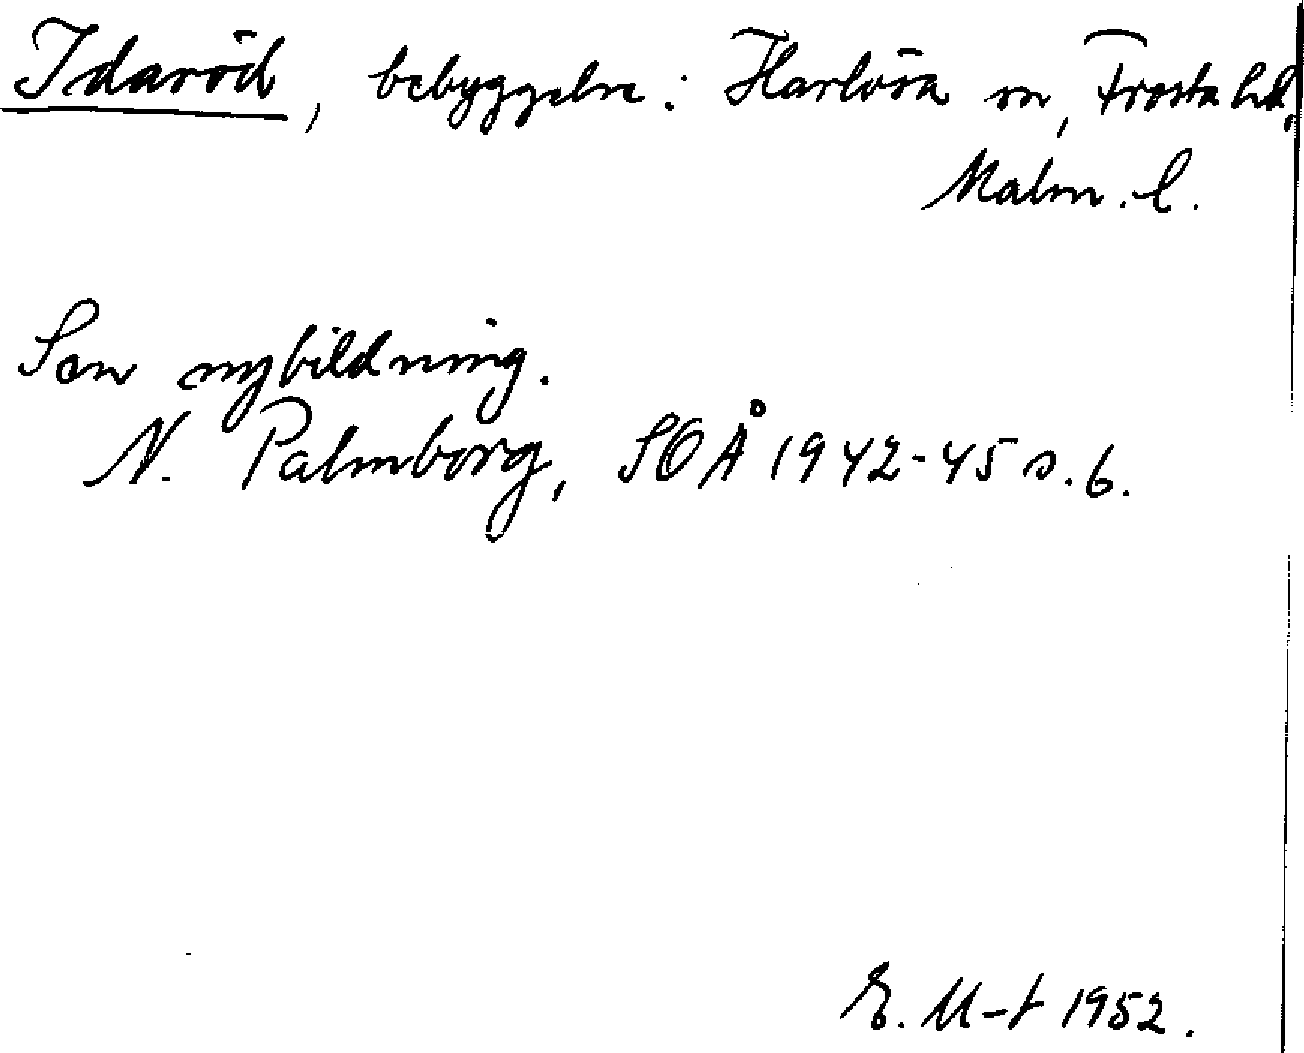 Idaröd, bebyggelse: Harlösa sn, Frosta hd,
Malm. l.
Sen nybildning.
N. Palmborg, SOÅ 1942-45 s. 6.
E. M-t 1952.